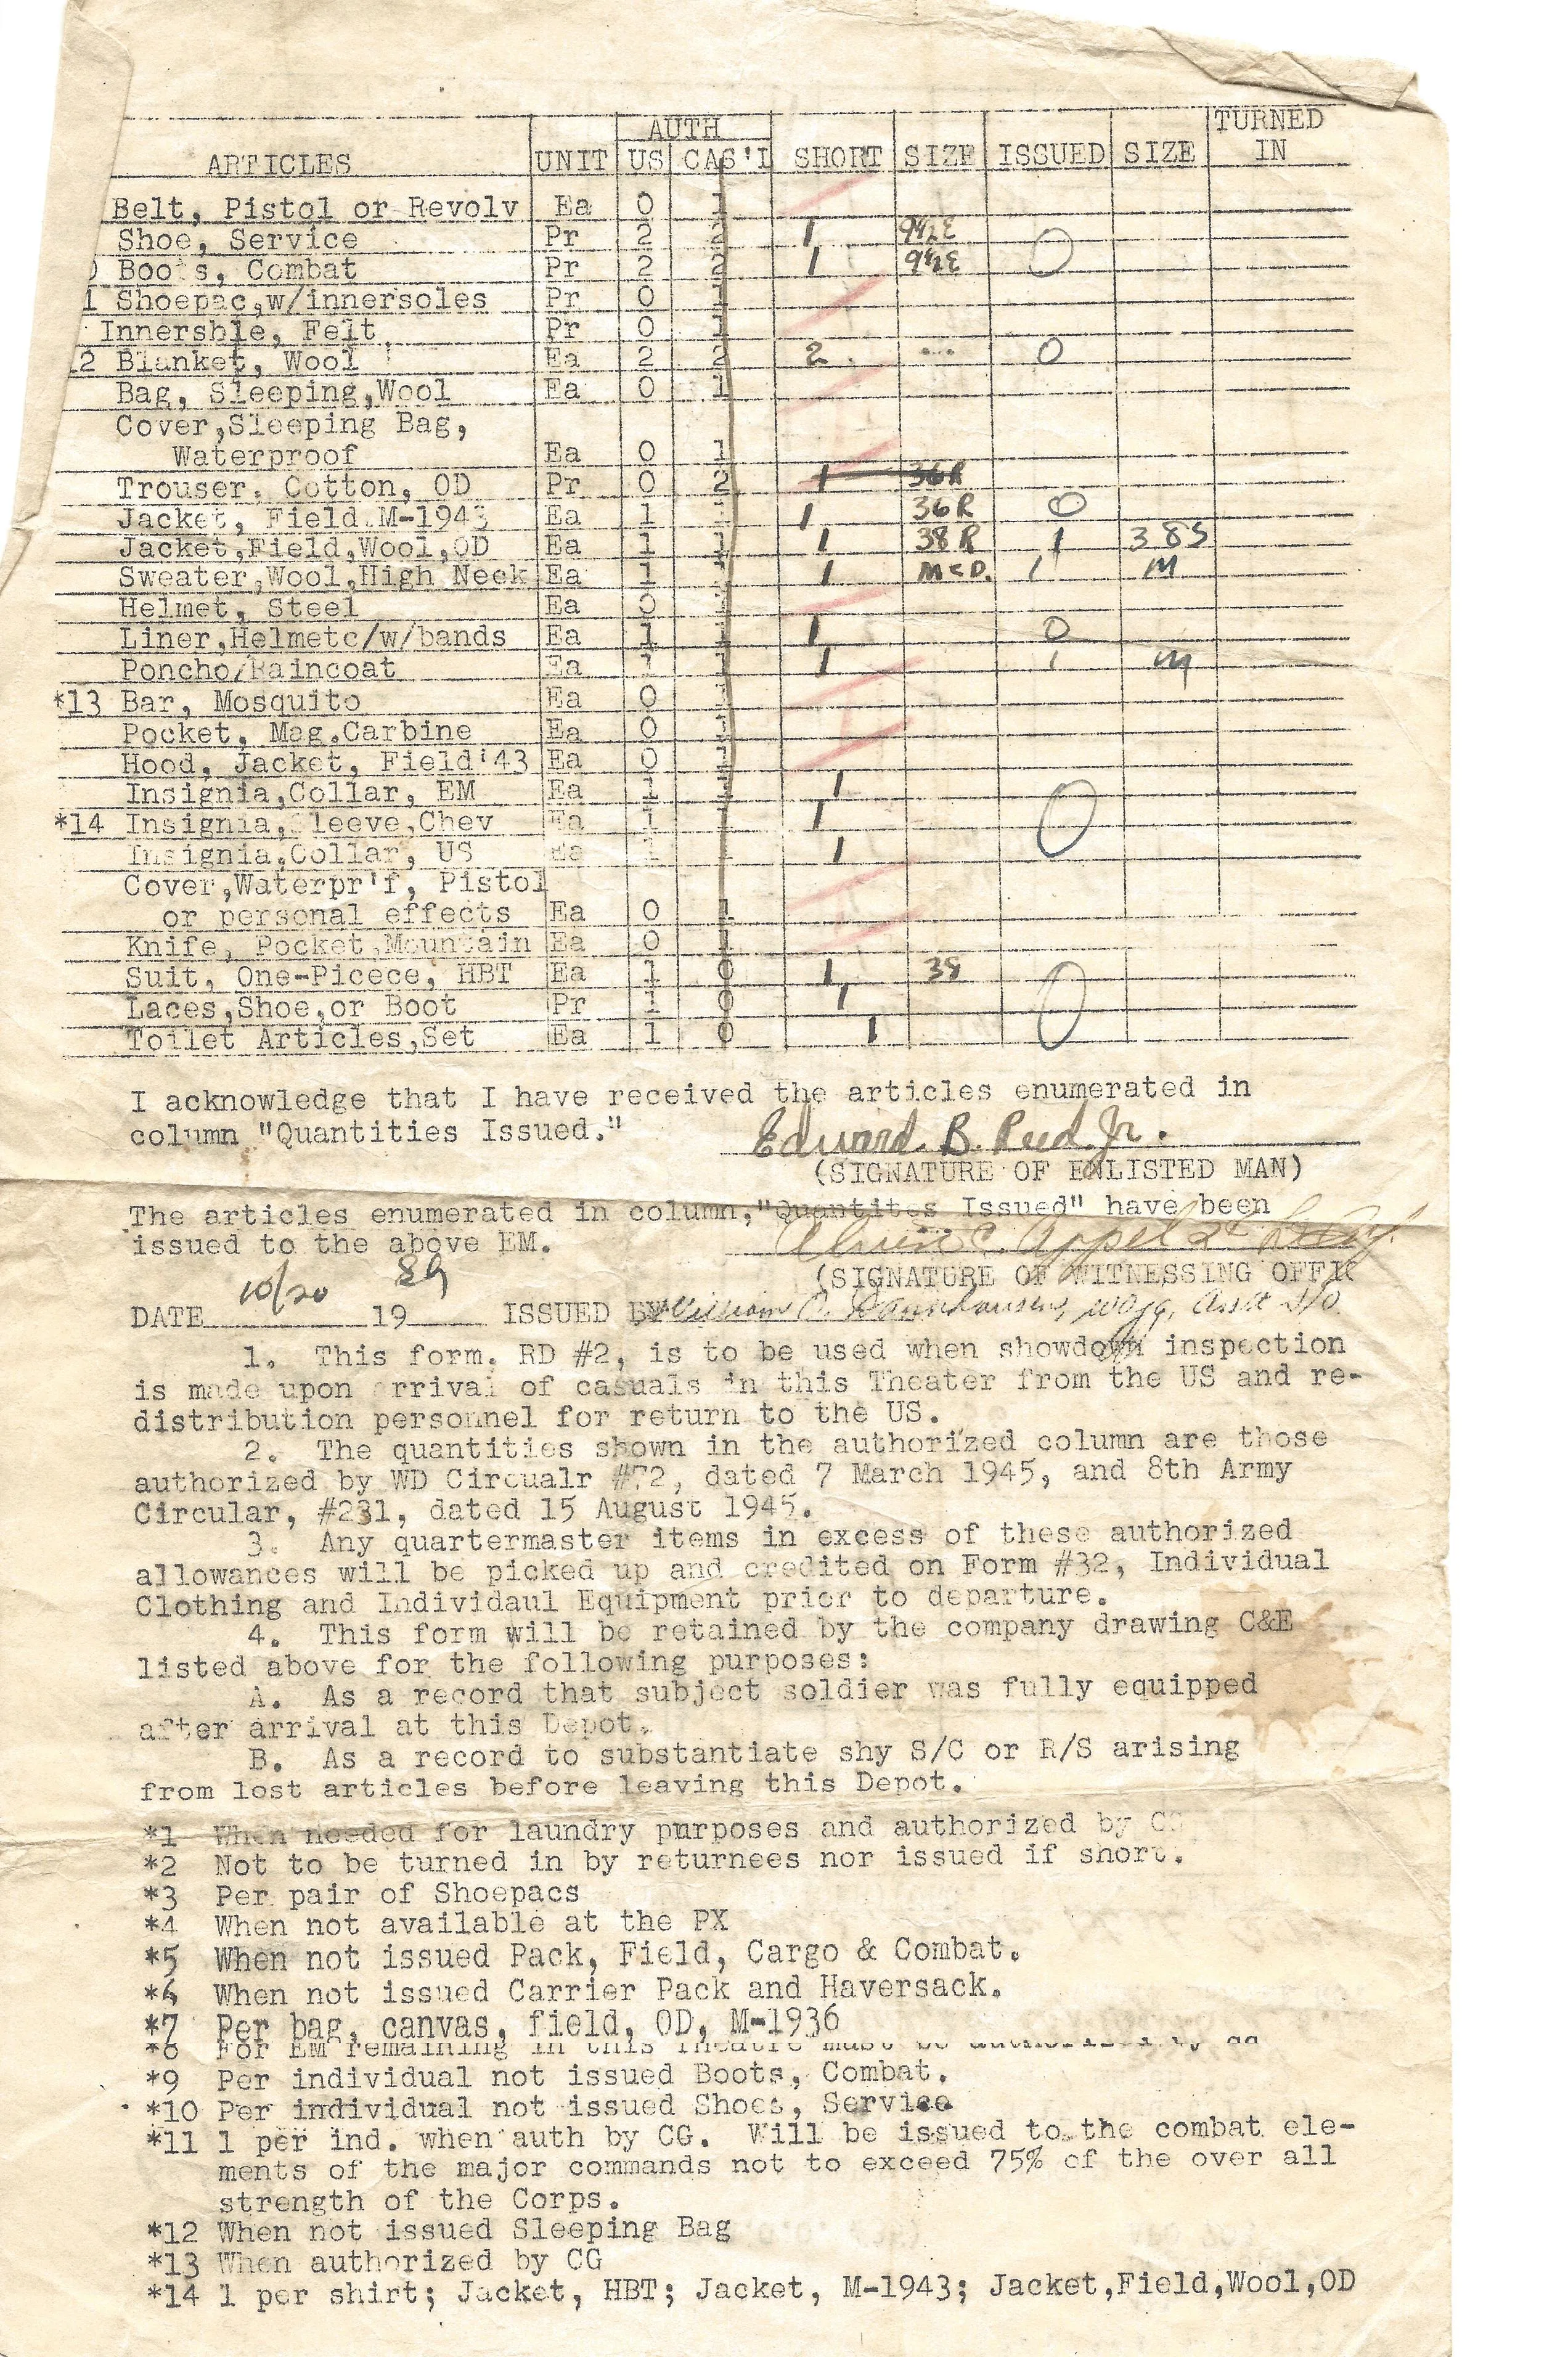 AUTH TURNED
ARTICLES UNIT US CAS'L SHORT SIZE ISSUED SIZE IN
Belt, Pistol or Revolv Ea 0 1
Shoe, Service Pr 2 2 1 9½E
Boots, Combat Pr 2 2 1 9½E 0
1 Shoepac,w/innersoles Pr 0 1
Innersole, Felt Pr 0 1
12 Blanket, Wool Ea 2 2 2 ... 0
Bag, Sleeping,Wool Ea 0 1
Cover,Sleeping Bag,
Waterproof Ea 0 1
Trouser, Cotton, OD Pr 0 2 1 36R
Jacket, Field.M-1943 Ea 1 1 1 36R 0
Jacket,Field,Wool,OD Ea 1 1 1 38R 1 38S
Sweater,Wool,High Neck Ea 1 1 1 MED. 1 M
Helmet, Steel Ea 0 1
Liner,Helmetc/w/bands Ea 1 1 1 0
Poncho/Raincoat Ea 1 1 1 1 M
*13 Bar, Mosquito Ea 0 1
Pocket, Mag.Carbine Ea 0 1
Hood, Jacket, Field'43 Ea 0 1
Insignia,Collar, EM Ea 1 1 1
*14 Insignia,Sleeve,Chev Ea 1 1 1 0
Insignia,Collar, US Ea 1 1 1
Cover,Waterpr'f, Pistol
or personal effects Ea 0 1
Knife, Pocket,Mountain Ea 0 1
Suit, One-Picece, HBT Ea 1 0 1 38
Laces,Shoe,or Boot Pr 1 0 1 0
Toilet Articles,Set Ea 1 0 1
I acknowledge that I have received the articles enumerated in
column "Quantities Issued." Edward. B. Reed. Jr.
(SIGNATURE OF ENLISTED MAN)
The articles enumerated in column,"Quantites Issued" have been
issued to the above EM. C. Appel 2d
(SIGNATURE OF WITNESSING OFFIC
10/20
DATE 19 ISSUED BY William C. WOJG, Asst S/O
1. This form. RD #2, is to be used when showdown inspection
is made upon arrival of casuals in this Theater from the US and re-
distribution personnel for return to the US.
2. The quantities shown in the authorized column are those
authorized by WD Circualr #72, dated 7 March 1945, and 8th Army
Circular, #231, dated 15 August 1945.
3. Any quartermaster items in excess of these authorized
allowances will be picked up and credited on Form #32, Individual
Clothing and Individaul Equipment prior to departure.
4. This form will be retained by the company drawing C&E
listed above for the following purposes:
A. As a record that subject soldier was fully equipped
after arrival at this Depot.
B. As a record to substantiate shy S/C or R/S arising
from lost articles before leaving this Depot.
*1 When needed for laundry purposes and authorized by CG
*2 Not to be turned in by returnees nor issued if short.
*3 Per pair of Shoepacs
*4 When not available at the PX
*5 When not issued Pack, Field, Cargo & Combat.
*6 When not issued Carrier Pack and Haversack.
*7 Per bag, canvas, field, OD, M-1936
*8 For EM remaining in this Theatre must be
*9 Per individual not issued Boots, Combat.
*10 Per individual not issued Shoes, Service
*11 1 per ind. when auth by CG. Will be issued to the combat ele-
ments of the major commands not to exceed 75% of the over all
strength of the Corps.
*12 When not issued Sleeping Bag
*13 When authorized by CG
*14 1 per shirt; Jacket, HBT; Jacket, M-1943; Jacket,Field,Wool,OD